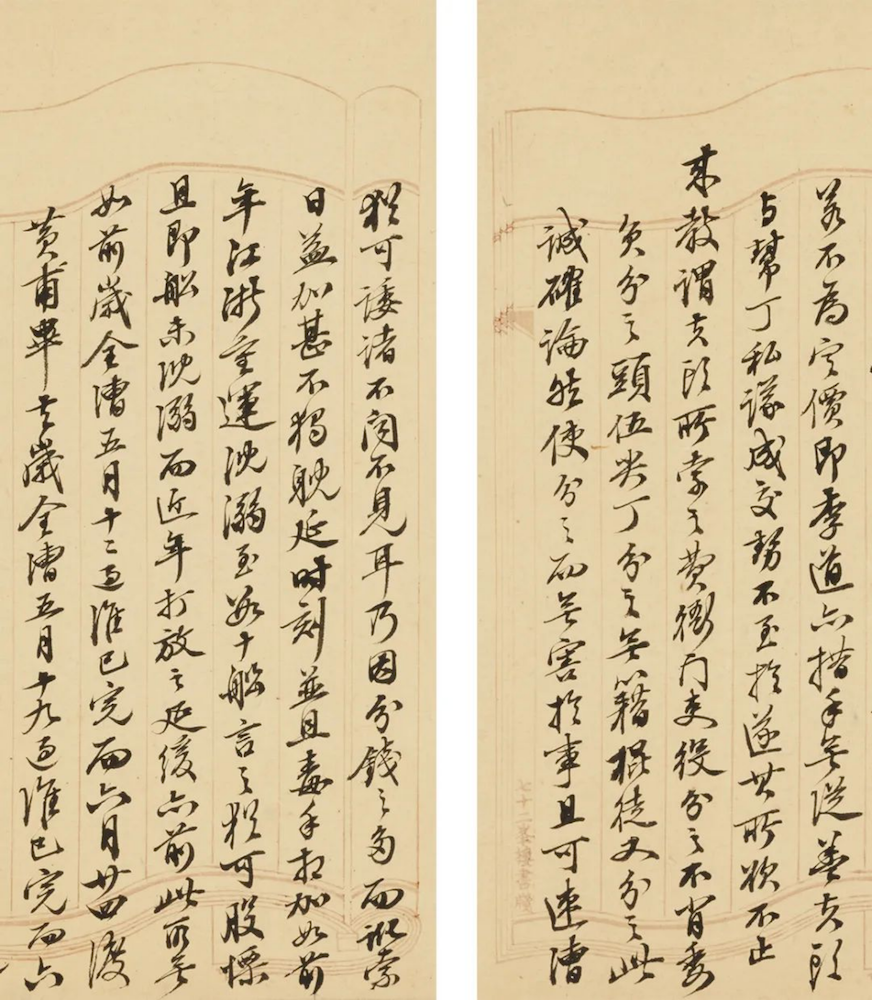 若不為定價即李道亦措手無從蓋夫頭
与幫丁私議成交勢不至於遂其所欲不止
來教謂夫頭所索之費衙門吏役分之不肖委
員分之頭伍尖丁分之無籍棍徒又分之此
誠確論然使分之而無害於事且可速漕
猶可諉諸不聞不見耳乃因分錢之多而訛索
日益加甚不獨耽延時刻並且毒手相加如前
年江浙重運沈溺至數十船言之猶可股慄
且即船未沈溺而近年打放之延緩亦前此所無
如前歲全漕五月十二過淮已完而六月廿四渡
黃甫畢去歲全漕五月十九過淮已完而六